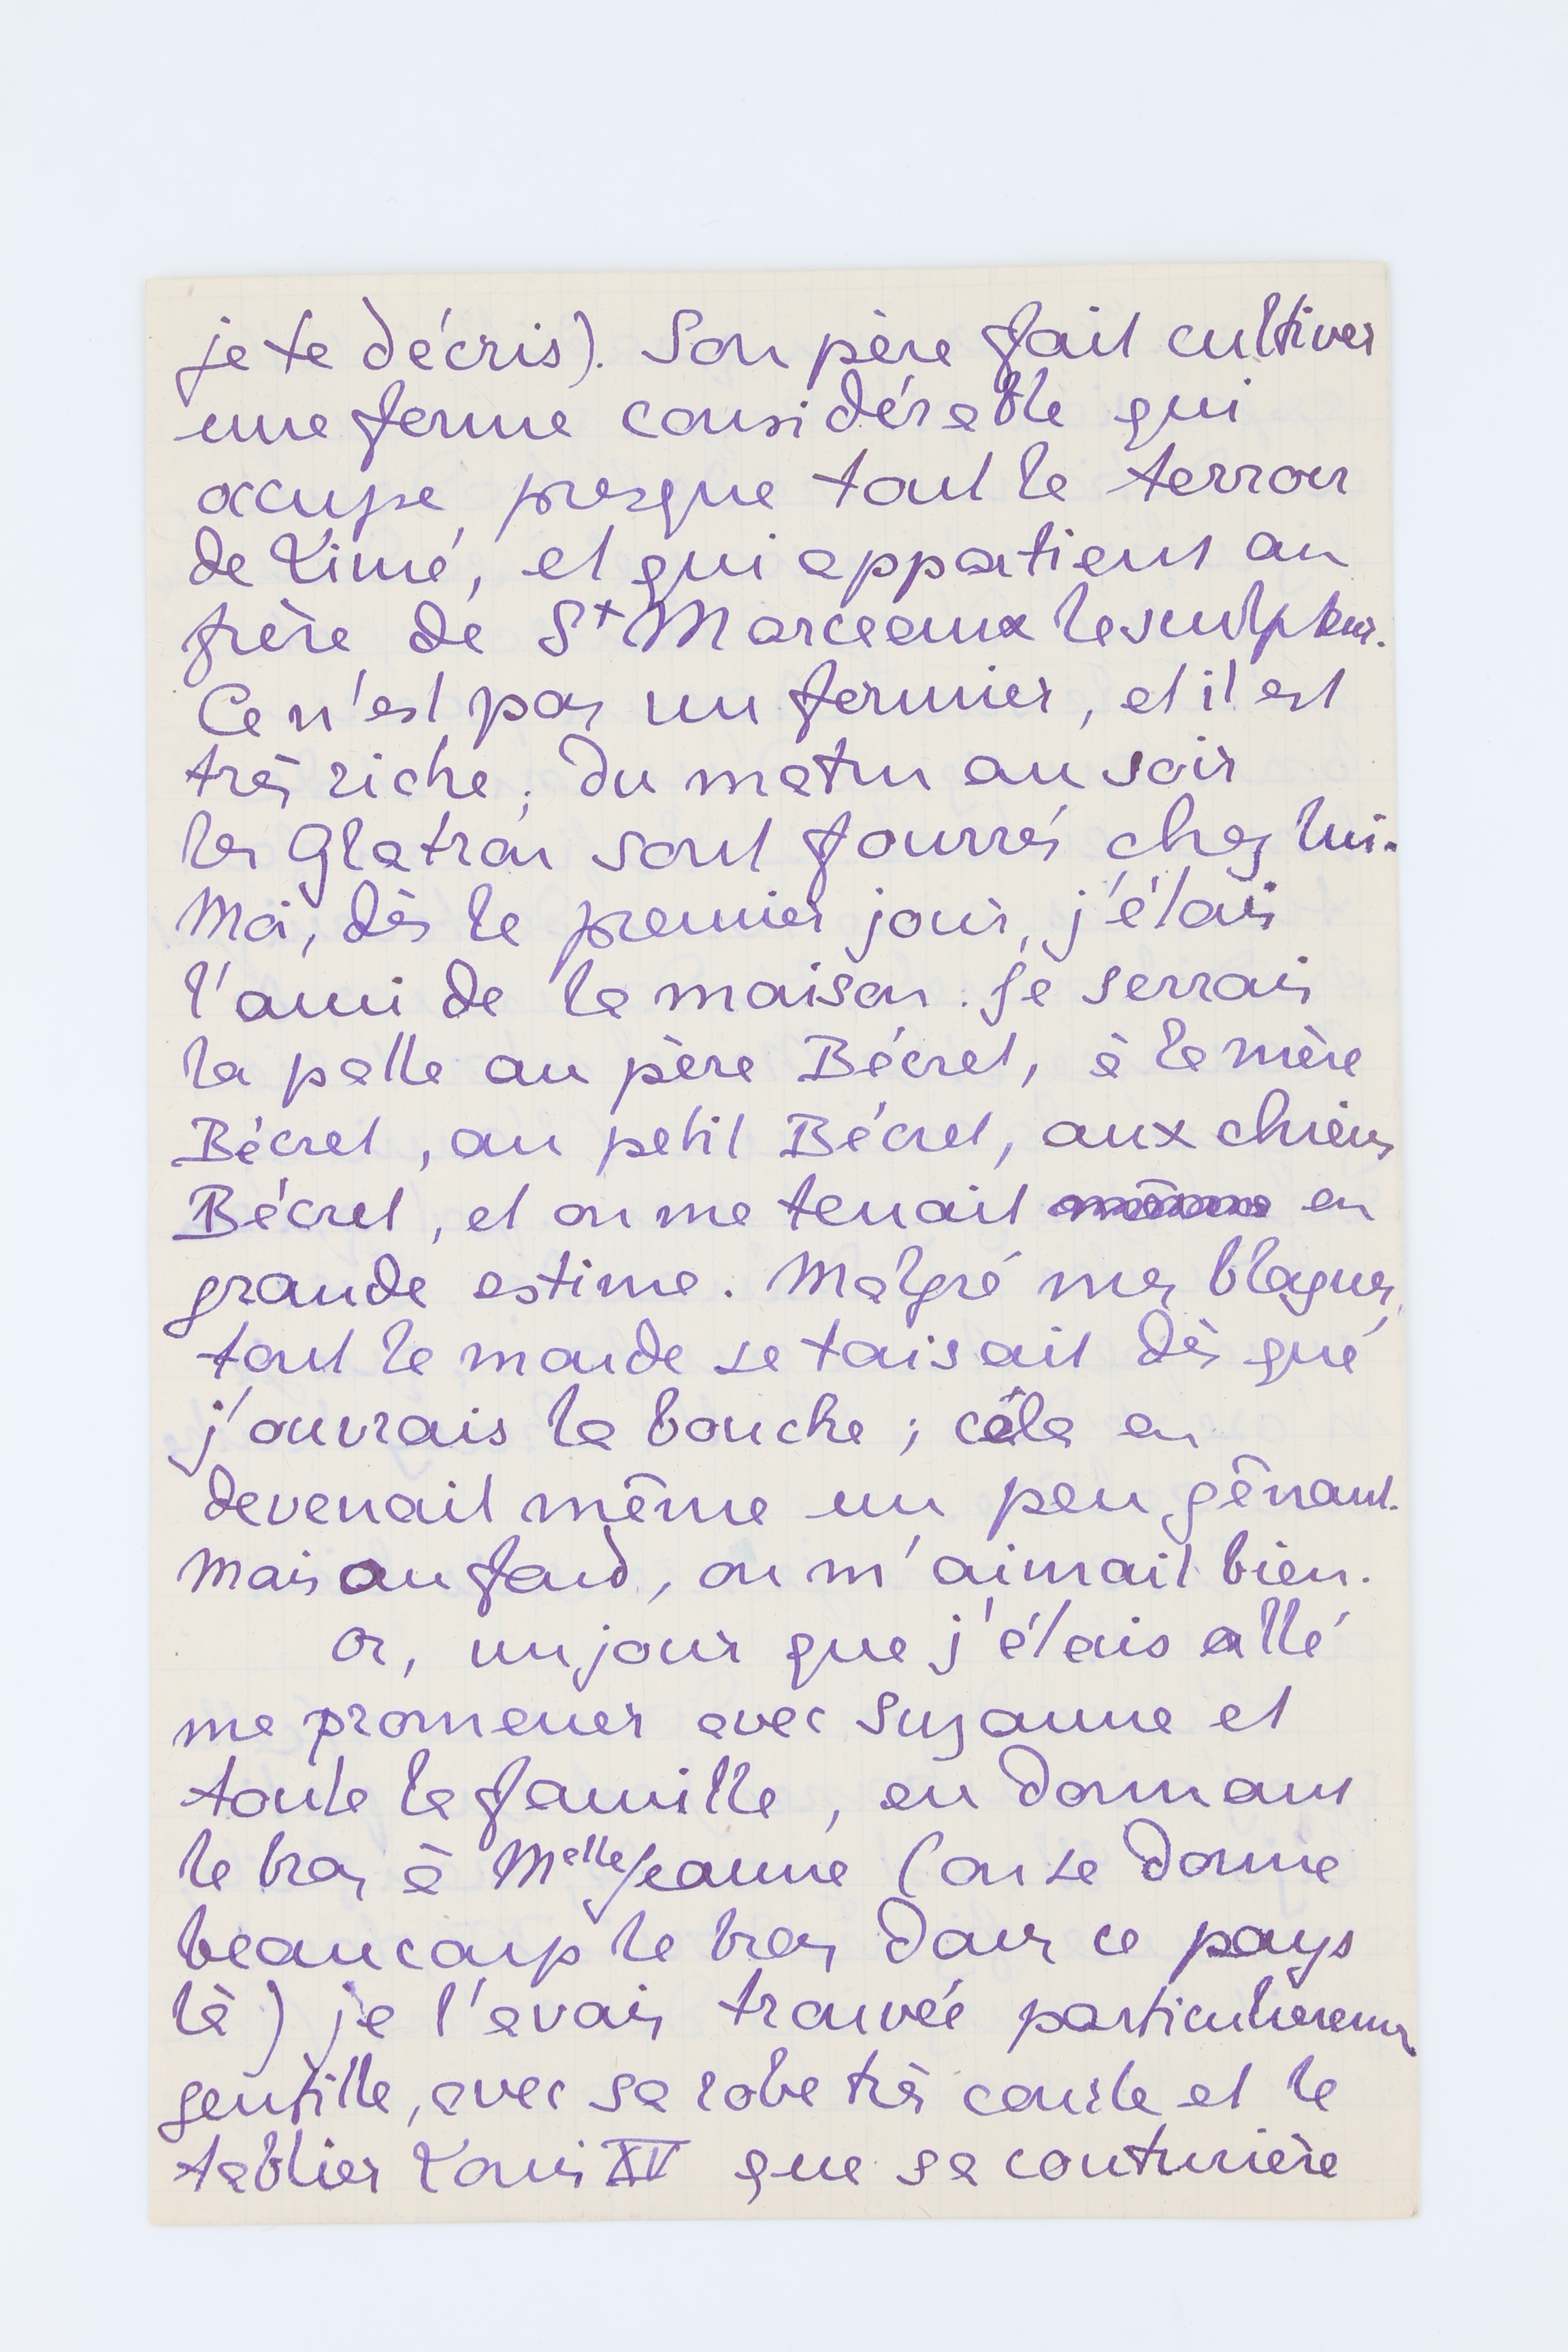 je te décris). Son père fait cultiver
une ferme considérable qui
occupe presque tout le terroir
de Limé, et qui appartient au
frère de St Marceaux le sculpteur.
Ce n'est pas un fermier, et il est
très riche. Du matin au soir
les Glatron sont fourrés chez lui.
Moi, dès le premier jour, j'étais
l'ami de la maison. Je serrais
la patte au père Bécret, à la mère
Bécret, au petit Bécret, aux chiens
Bécret, et on me tenait en
grande estime. Malgré mes blagues,
tout le monde se taisait dès que
j'ouvrais la bouche ; céla en
devenait même un peu gênant.
Mais au fond, on m'aimait bien.
Or, un jour que j'étais allé
me promener avec Suzanne et
toute la famille, en donnant
le bras à Melle Jeanne (on se donne
beaucoup le bras dans ce pays
là) je l'avais trouvée particulièrement
gentille, avec sa robe très courte et le
tablier Louis XV que sa couturière